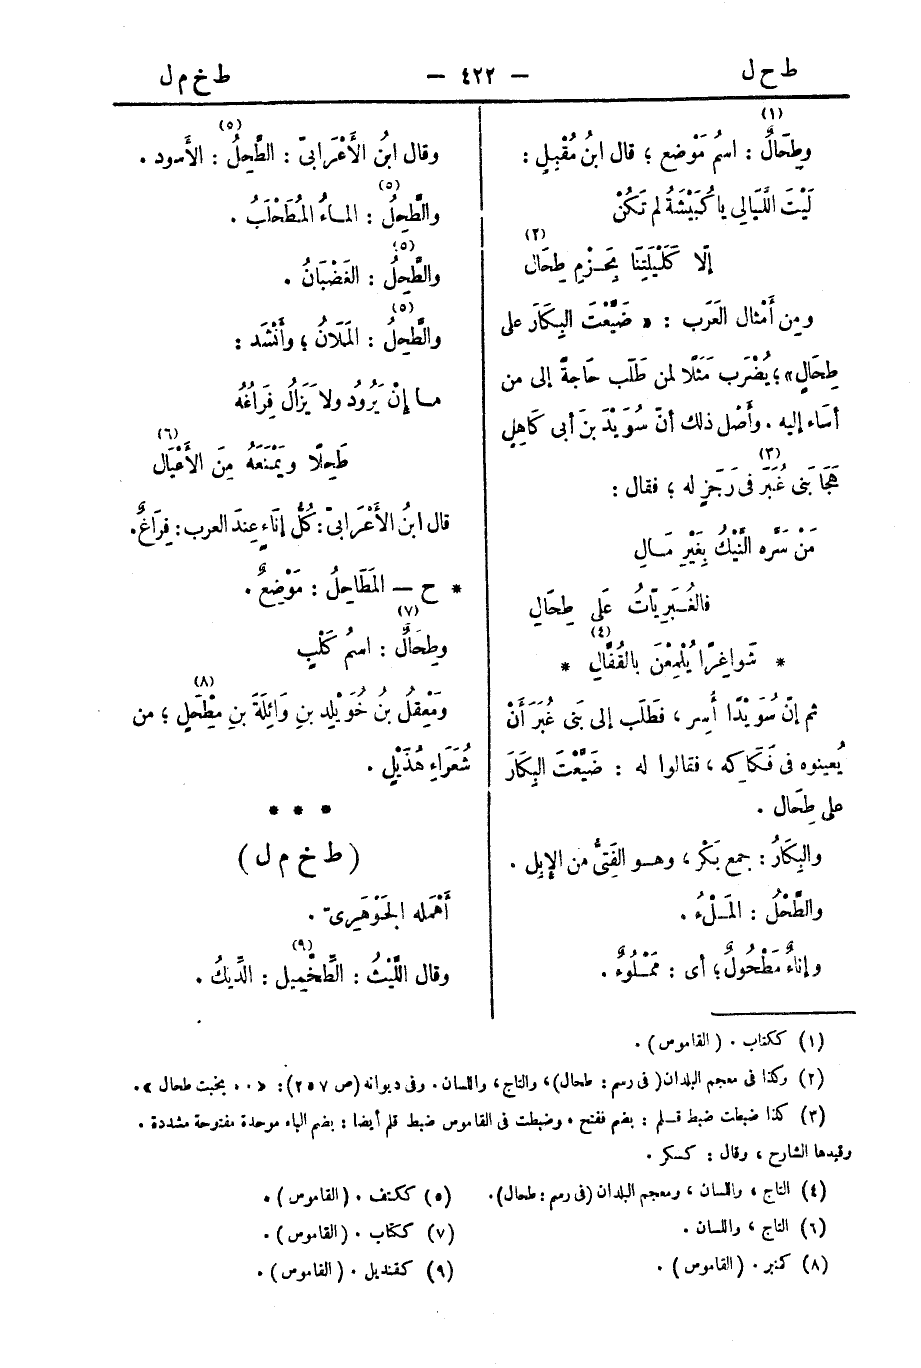 ط ح ل
— ٤٢٢ —
ط خ م ل
(١)
وطِحَالٌ : اسمُ مَوْضع ؛ قال ابنُ مُقْبِلٍ :
لَيْتَ اللَّيَالِي يا كُبَيْشَةُ لم تَكُنْ
(٢)
إلّا كَلَيْلَتِنَا بِحَـزْمِ طِحَالِ
ومِن أَمْثال العَرَب : « ضَيَّعْتَ البِكَارَ على
طِحَالٍ» ؛ يُضْرَب مَثَلًا لمن طَلَب حَاجةً إلى من
أسَاء إليه . وأَصْل ذلك أنّ سُوَيْدَ بنَ أبى كَاهِلٍ
(٣)
هَجَا بَنى غُبَرَ فى رَجَزٍ له ؛ فقال :
مَنْ سَرَّه النَّيْكُ بِغَيْرِ مَـالِ
فالغُـبَرِيّاتُ عَلَى طِحَالِ
(٤)
* شَواغِرًا يُلْمِعْنَ بالقُفَّالِ *
ثم إنّ سُوَيْدًا أُسِر ، فطَلَب إلى بَنى غُبَرَ أَنْ
يُعينوه فى فَكَاكِه ، فقالوا له : ضَيَّعْتَ البِكَارَ
على طِحَال .
والبِكَارُ : جمع بَكْر ، وهـو الفَتِىُّ من الإبِل .
والطَّحْلُ : المَـلْءُ .
وإناءٌ مَطْحُولٌ ؛ أى : مَمْلُوءٌ .
(٥)
وقال ابنُ الأَعْرَابىّ : الطَّحِلُ : الأَسود .
(٥)
والطَّحِلُ : المـاءُ المُطَحْلَبُ .
(٥)
والطَّحِلُ : الغَضْبَانُ .
(٥)
والطَّحِلُ : المَلَآنُ ؛ وأَنْشَد :
مـا إنْ يَرُودُ ولا يَزَالُ فِرَاغُهُ
(٦)
طَحِلًا ويَمْنَعَهُ مِنَ الأَعْيَالِ
قال ابنُ الأَعْرَابىّ : كُلُّ إنَاءٍ عِندَ العرب : فِرَاغٌ .
* ح — المَطَاحِلُ : مَوْضِعٌ .
(٧)
وطِحَالٌ : اسمُ كَلْبٍ
(٨)
ومَعْقِلُ بنُ خُوَيْلِدِ بنِ وَائِلَةَ بنِ مِطْحَلٍ ؛ من
شُعَرَاءِ هُذَيْلٍ .
* * *
( ط خ م ل )
أَهْمَله الجَوْهَرِىّ .
(٩)
وقال اللَّيْثُ : الطِّخْمِيل : الدِّيكُ .
(١) ككتاب . (القاموس) .
(٢) وكذا فى معجم البلدان ( فى رسم : طحال) ، والتاج ، واللسان . وفى ديوانه (ص ٢٥٧) : « . . بخبت طحال » .
(٣) كذا ضبطت ضبط قـلم : بضم ففتح . وضبطت فى القاموس ضبط قلم أيضا : بضم الباء موحدة مفتوحة مشددة .
وقيدها الشارح ، وقال : كسكر .
(٤) التاج ، واللسان ، ومعجم البلدان (فى رسم : طحال) .
(٥) ككتف . (القاموس) .
(٦) التاج ، واللسان .
(٧) ككتاب . (القاموس) .
(٨) كنبر . (القاموس) .
(٩) كقنديل . (القاموس) .